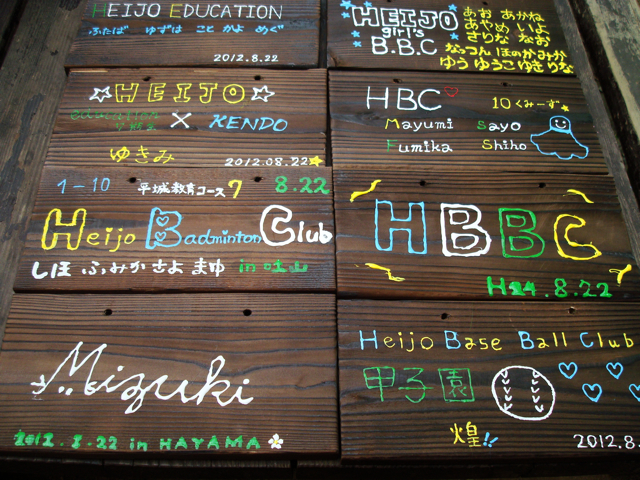 HEIJO EDUCATION
ふたば ゆずは こと かよ めぐ
2012.8.22
HEIJO
girl's
B.B.C
あお あかね
あやめ めい よ
さりな なお
なっつん ほのか みか
ゆう ゆうこ ゆき りな
☆HEIJO☆
× KENDO
ゆきみ
2012.08.22
HBC♡
10くみーず
Mayumi Sayo
Fumika Shiho
1-10 平城教育コース7 8.22
Heijo Badminton Club
しほ ふみか さよ まゆ in 吐山
HBBC
H24.8.22
Mizuki
2012.8.22 in HAYAMA
Heijo Base Ball Club
甲子園
煌!!
2012.8.